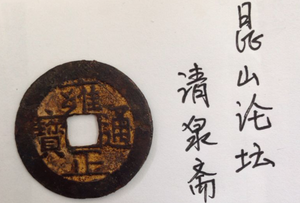 昆山论坛
清泉斋
雍正通寶